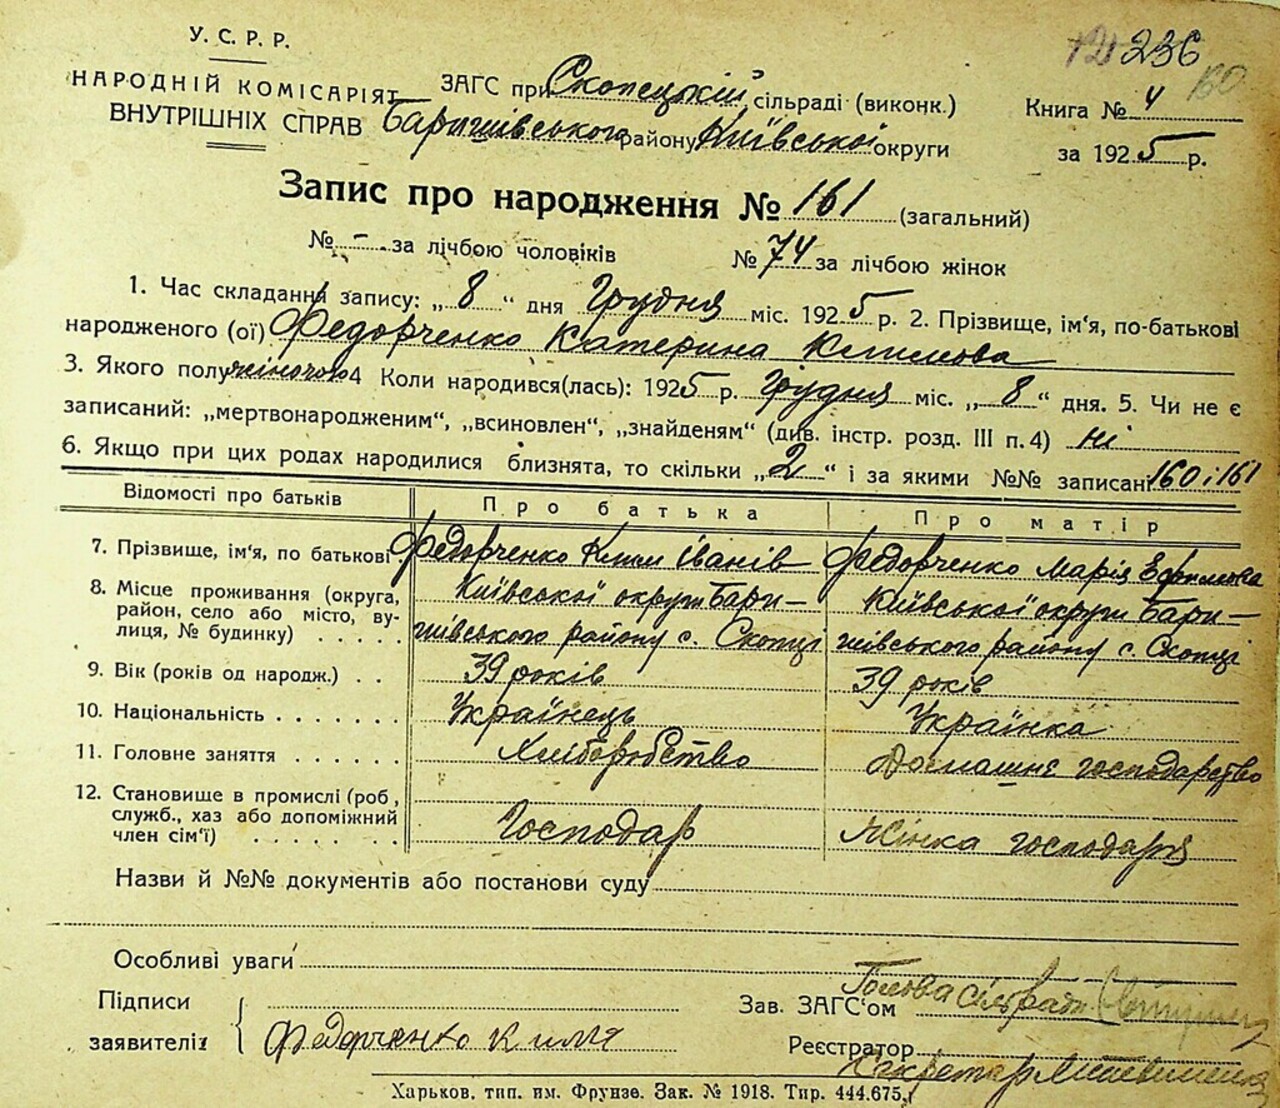 У. С. Р. Р.
236
НАРОДНІЙ КОМІСАРІЯТ
ВНУТРІШНІХ СПРАВ
ЗАГС при Скопецкій сільраді (виконк.)
Баришівського району Київської округи
Книга № 4
за 1925 р.
Запис про народження № 161 (загальний)
№ - за лічбою чоловіків № 74 за лічбою жінок
1. Час складання запису: „ 8 “ дня Грудня міс. 1925 р. 2. Прізвище, ім‘я, по-батькові
народженого (ої) Федорченко Катерина Климова
3. Якого полу жіночого 4 Коли народився(лась): 1925 р. Грудня міс. „ 8 “ дня. 5. Чи не є
записаний: „мертвонародженим“, „всиновлен“, „знайденям“ (див. інстр. розд. III п. 4) ні
6. Якщо при цих родах народилися близнята, то скільки „ 2 “ і за якими №№ записані 160 і 161
Відомості про батьків Про батька Про матір
7. Прізвище, ім‘я, по батькові Федорченко Клим Іванів Федорченко Марія Ефимова
8. Місце проживання (округа, район, село або місто, вулиця, № будинку) . . . . . Київської округи Баришівського району с. Скопці Київської округи Баришівського району с. Скопці
9. Вік (років од народж.) . . 39 років 39 років
10. Національність . . . . . . . Українець Українка
11. Головне заняття . . . . . . Хліборобство Домашнє господарство
12. Становище в промислі (роб, служб., хаз або допоміжний член сім‘ї) . . . . . . . Господар Жінка господаря
Назви й №№ документів або постанови суду
Особливі уваги
Підписи
заявителів
Федорченко Клим
Зав. ЗАГС‘ом Голова сільради
Реєстратор Секретар
Харьков. тип. им. Фрунзе. Зак. № 1918. Тир. 444.675.